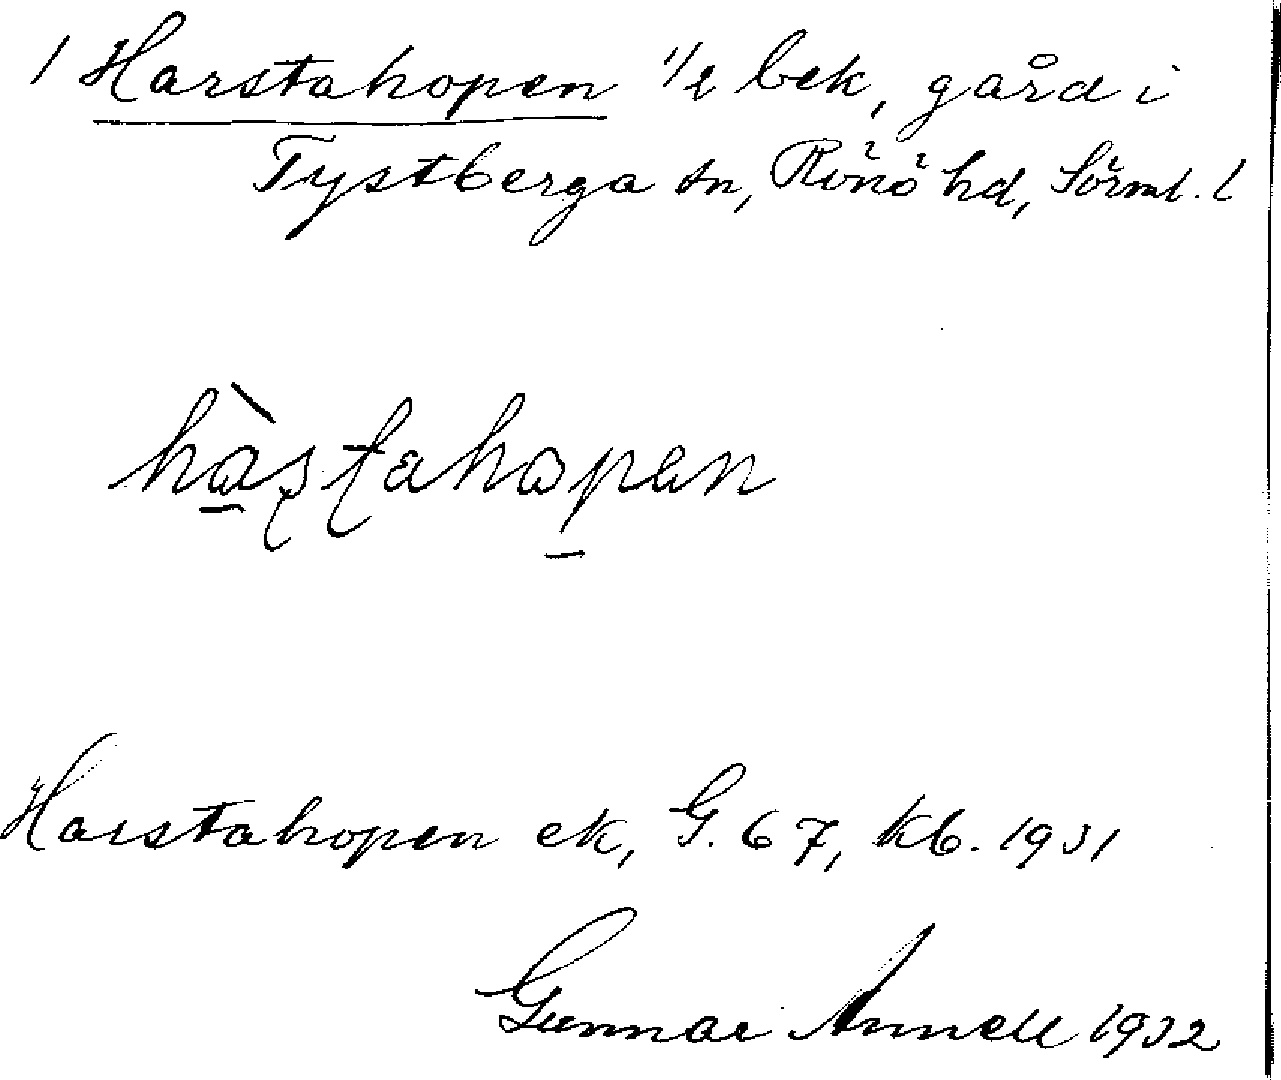 1 Harstahopen 1/2 bek, gård i
Tystberga sn, Rönö hd, Sörml. l
hàstahopen
Harstahopen ek, G. 67, kb. 1931
Gunnar Annell 1932